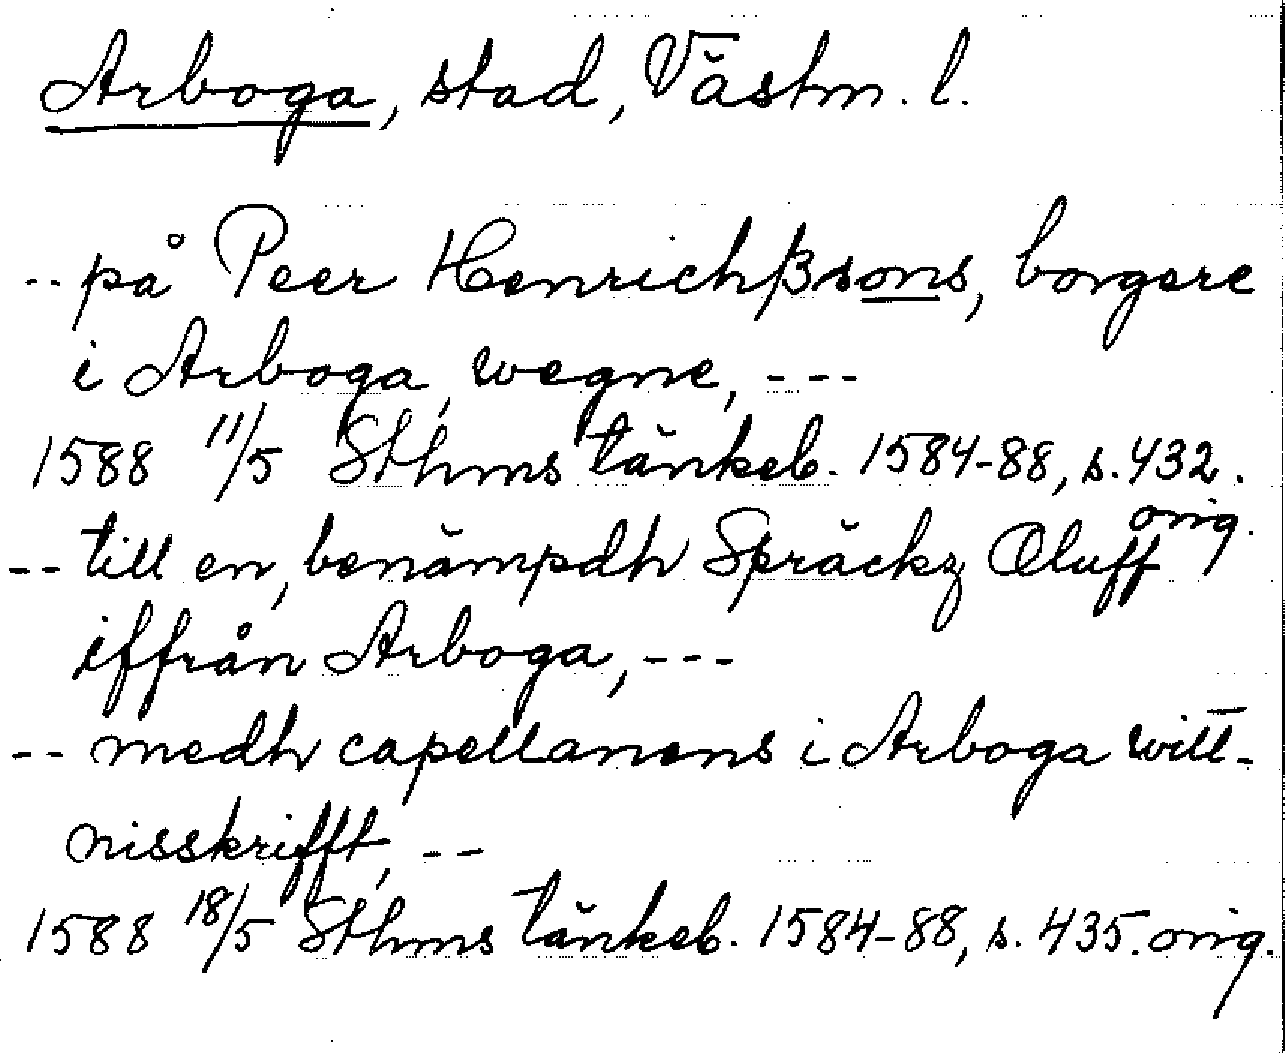 Arboga, stad, Västm. l.
-- på Peer Henrichßsons, borgere
i Arboga, wegne, ---
1588 11/5 Sthms tänkeb. 1584-88, s. 432.
orig.
-- till en, benämpdh Spräckz Oluff
iffrån Arboga, ---
-- medh capellanens i Arboga witt-
nisskrifft, --
1588 18/5 Sthms tänkeb. 1584-88, s. 435. orig.